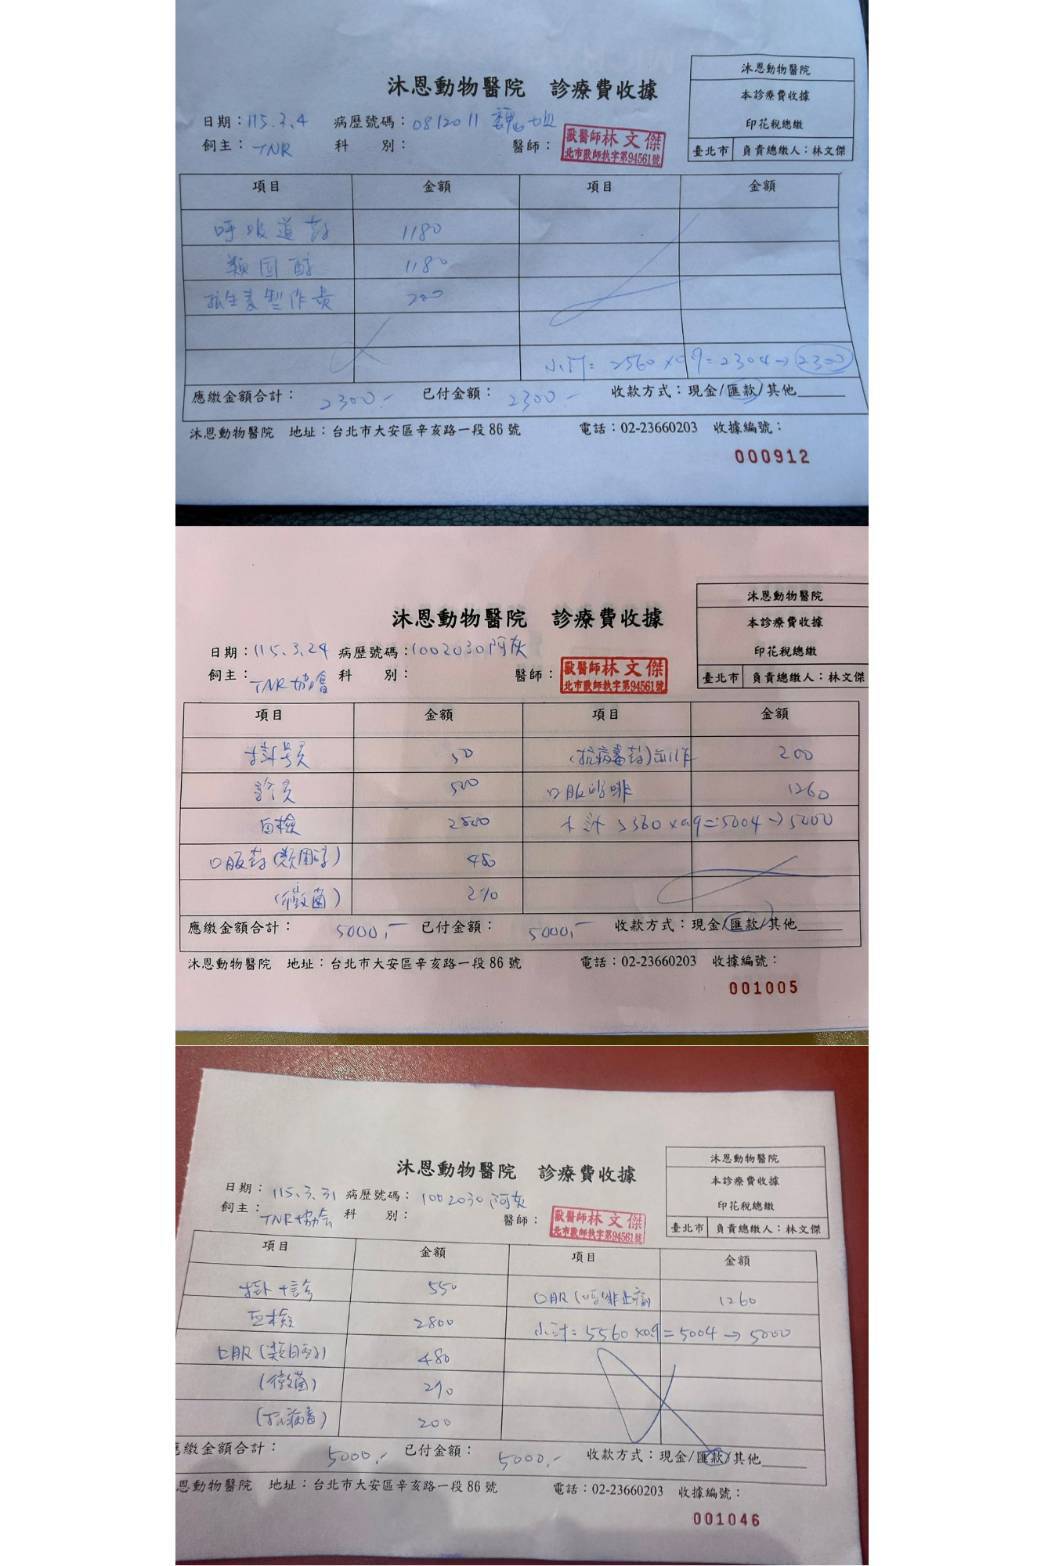 沐恩動物醫院　診療費收據
沐恩動物醫院
本診療費收據
印花稅總繳
臺北市　負責總繳人：林文傑
日期：115.3.4　病歷號碼：0812011
飼主：TNR　科　別：　醫師：
獸醫師林文傑
北市獸師執字第94561號
項目　金額　項目　金額
呼吸道藥　1180
類固醇　1180
抗生素製作費　200
小計=2560×0.9=2304→2300
應繳金額合計：2300.-　已付金額：2300.-　收款方式：現金/匯款/其他
沐恩動物醫院　地址：台北市大安區辛亥路一段86號　電話：02-23660203　收據編號：
000912
沐恩動物醫院　診療費收據
沐恩動物醫院
本診療費收據
印花稅總繳
臺北市　負責總繳人：林文傑
日期：115.3.24　病歷號碼：1002030阿灰
飼主：TNR協會　科　別：　醫師：
獸醫師林文傑
北市獸師執字第94561號
項目　金額　項目　金額
掛號　50　(抗病毒藥)製作　200
診　500　口服嗎啡　1260
血檢　2800　小計 5560×0.9=5004→5000
口服藥(類固醇)　480
(黴菌)　270
應繳金額合計：5000.-　已付金額：5000.-　收款方式：現金/匯款/其他
沐恩動物醫院　地址：台北市大安區辛亥路一段86號　電話：02-23660203　收據編號：
001005
沐恩動物醫院　診療費收據
沐恩動物醫院
本診療費收據
印花稅總繳
臺北市　負責總繳人：林文傑
日期：115.3.31　病歷號碼：1002030阿灰
飼主：TNR協會　科　別：　醫師：
獸醫師林文傑
北市獸師執字第94561號
項目　金額　項目　金額
掛+診　550　口服(嗎啡止痛　1260
血檢　2800　小計=5560×0.9=5004→5000
口服(類固醇)　480
(黴菌)　270
(抗病毒)　200
繳金額合計：5000.-　已付金額：5000.-　收款方式：現金/匯款/其他
恩動物醫院　地址：台北市大安區辛亥路一段86號　電話：02-23660203　收據編號：
001046